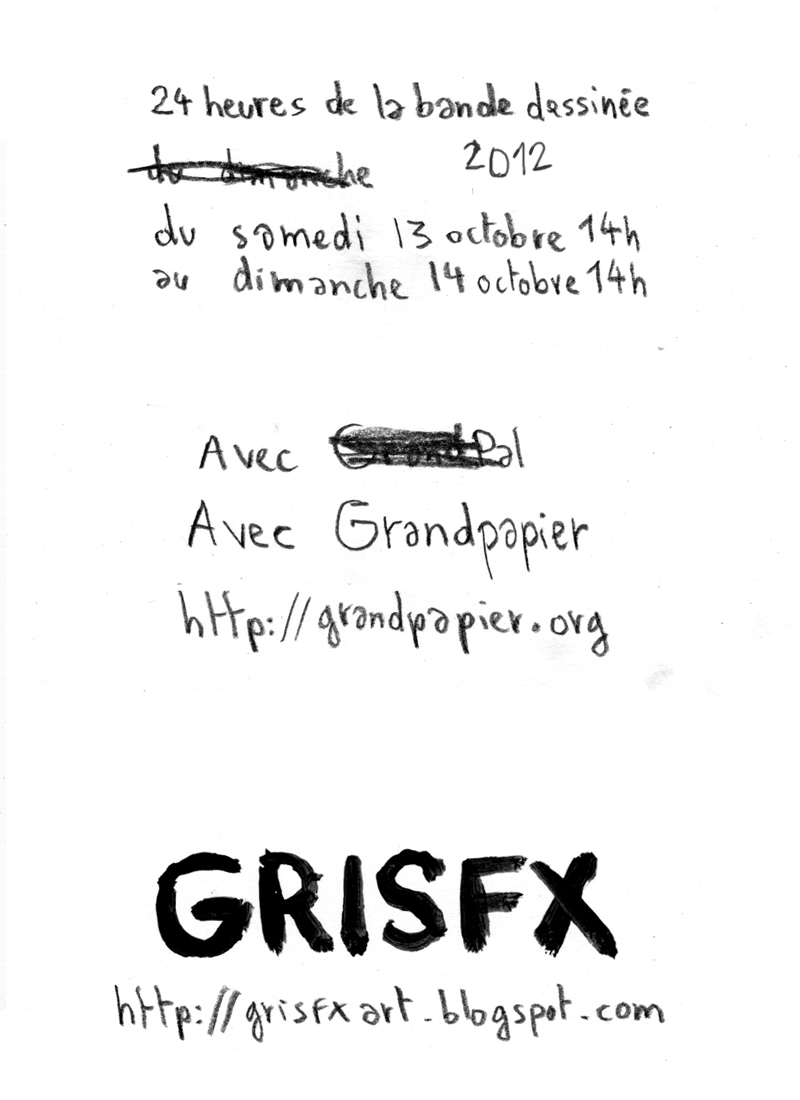 24 heures de la bande dessinée
du dimanche 2012
du samedi 13 octobre 14h
au dimanche 14 octobre 14h
Avec GrandPal
Avec Grandpapier
http://grandpapier.org
GRISFX
http://grisfxart.blogspot.com